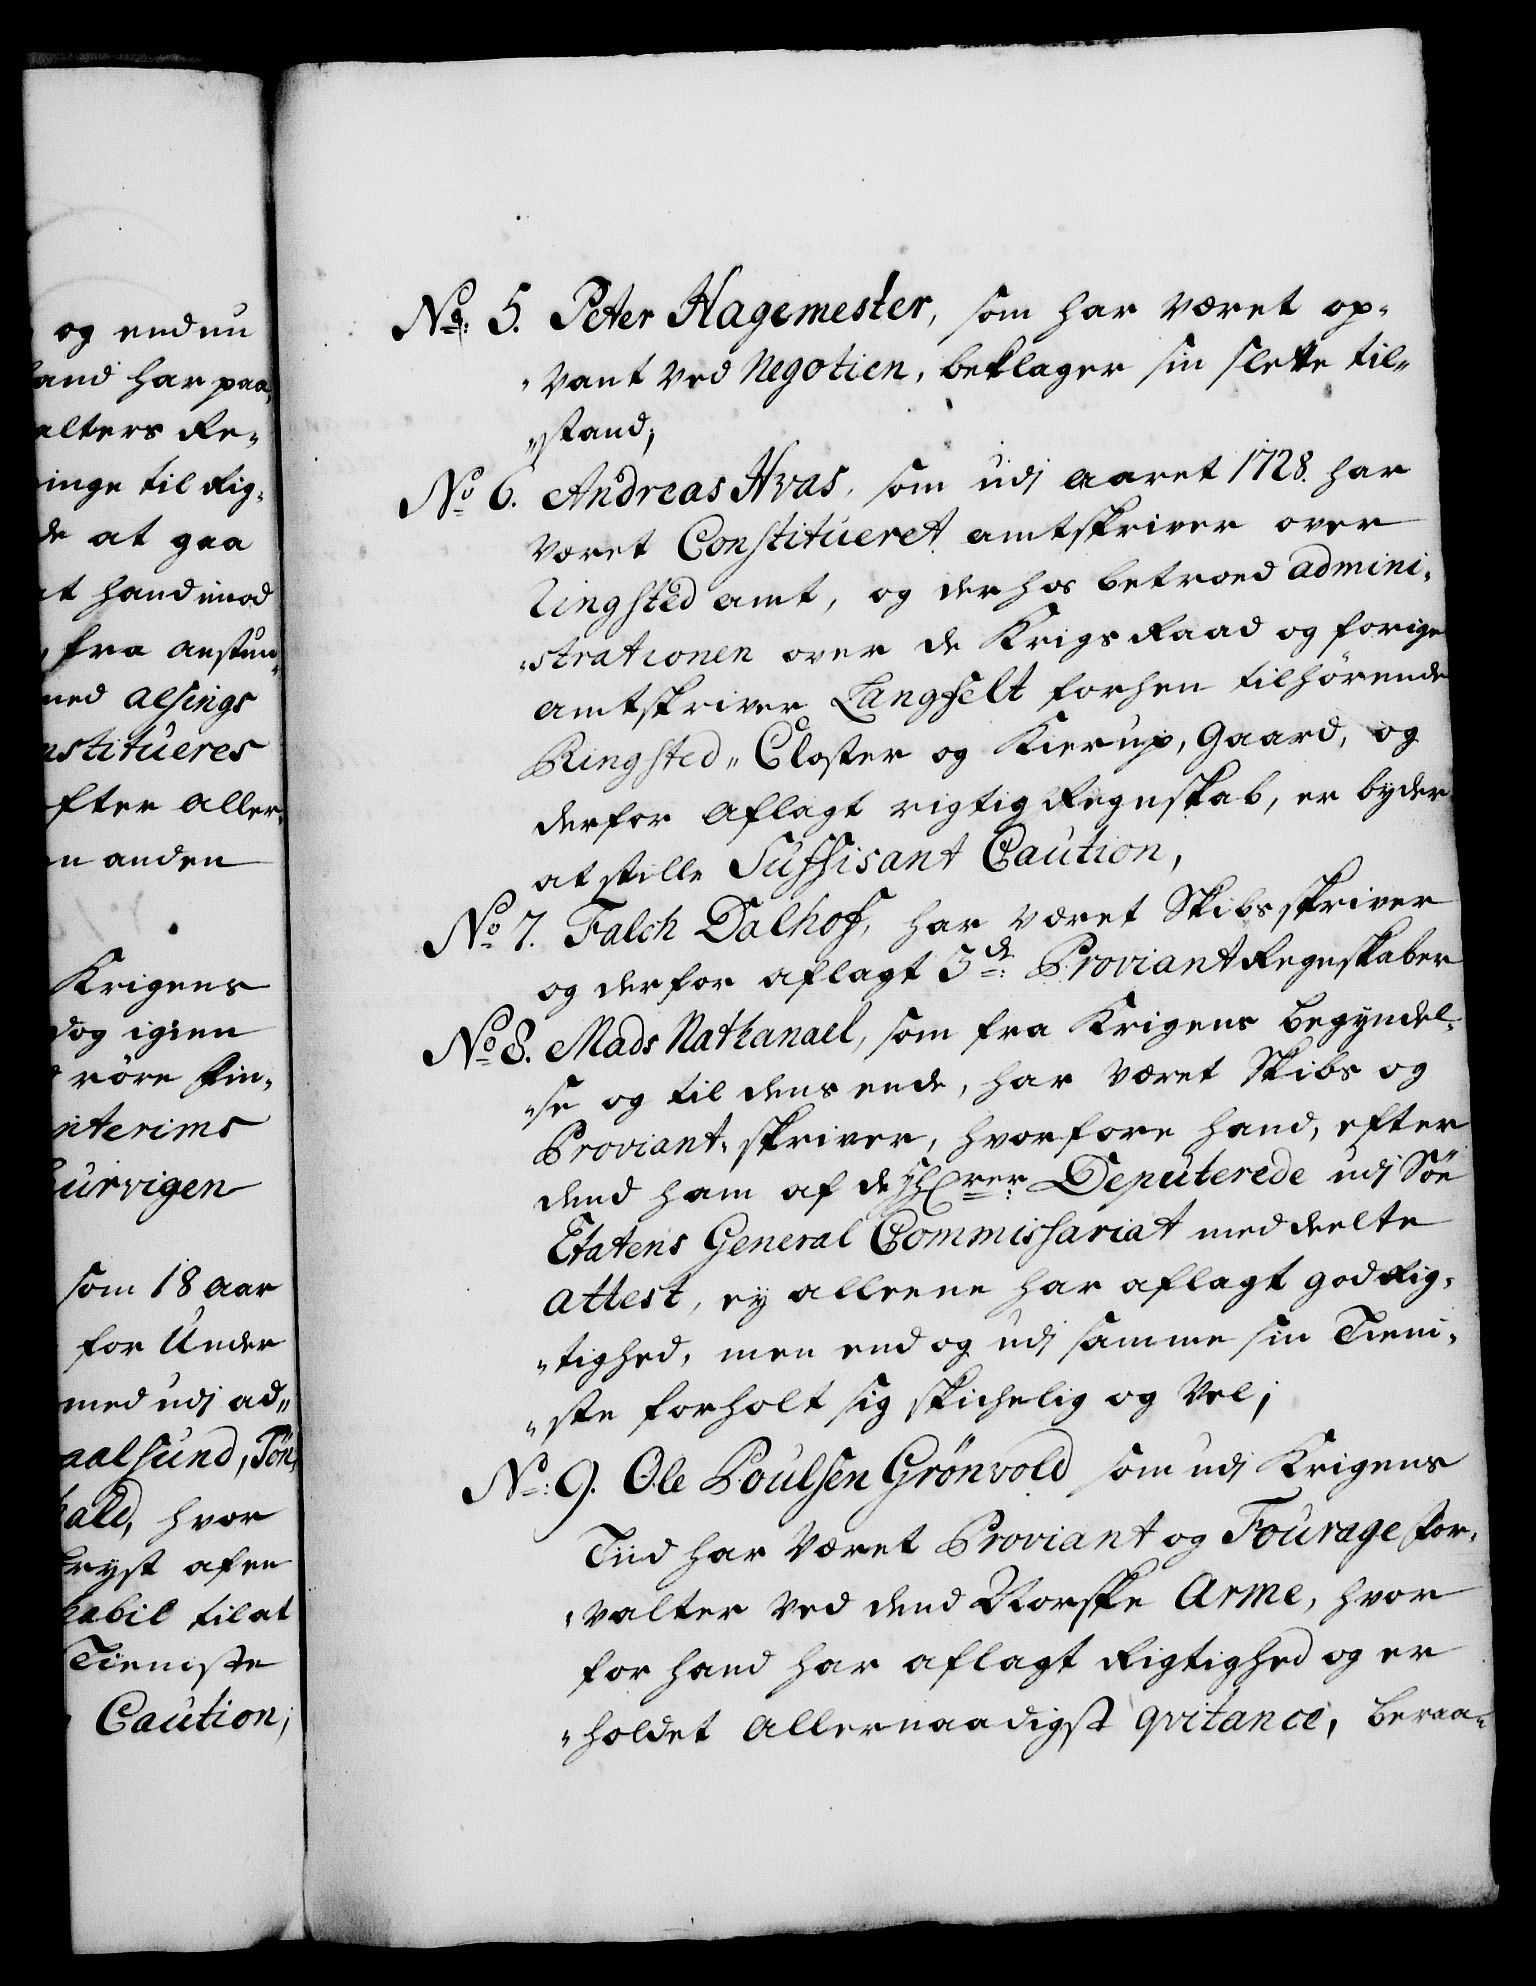 og endnu
hand har paa,
alters Re-
inge til Rig-
de at gaa
at hand imod
fra anstun-
med alsings
nstitueres
efter aller-
en anden
Krigens
dog igien
röre fin-
interims
Laurvigen
som 18 aar
for Under
med udi ad„
aalsund, Tön,
hald, hvor
tryst af en
habil til at
Tieniste
Caution;
No: 5. Peter Hagemester, som har været op-
„vant ved Negotien, beklager sin slette til„
„stand;
No 6. Andreas Hvas, som udi aaret 1728. har
været Constitueret amtskriver over
Ringsted amt, og derhos betroed admini-
„strationen over de Krigs Raad og forige
amtskriver Langfelt forhen tilhörende
Ringsted„ Closter og Kierup, Gaard, og
derfor aflagt rigtig Regnskab, er byder
at stille Suffisant Caution,
No 7. Falch Dalhof, har været Skibsskriver
og derfor aflagt 3de: Proviant Regnskaber
No 8. Mads Nathanael, som fra Krigens begyndel-
„se og til dens ende, har været Skibs og
Proviant„skriver, hvorfore hand, efter
dend ham af de Hrer: Deputerede udi Söe
Etatens General Commissariat meddeelte
attest, ey alleene har aflagt god Rig-
„tighed, men end og udi samme sin Tieni-
„ste forholt sig skichelig og Vel;
No: 9. Ole Poulsen Grönvold som udi Krigens
Tiid har været Proviant og Fourage for-
„valter ved dend Norske Arme, hvor
for hand har aflagt Rigtighed og er
„holdet allernaadigst qvitance, beraa-